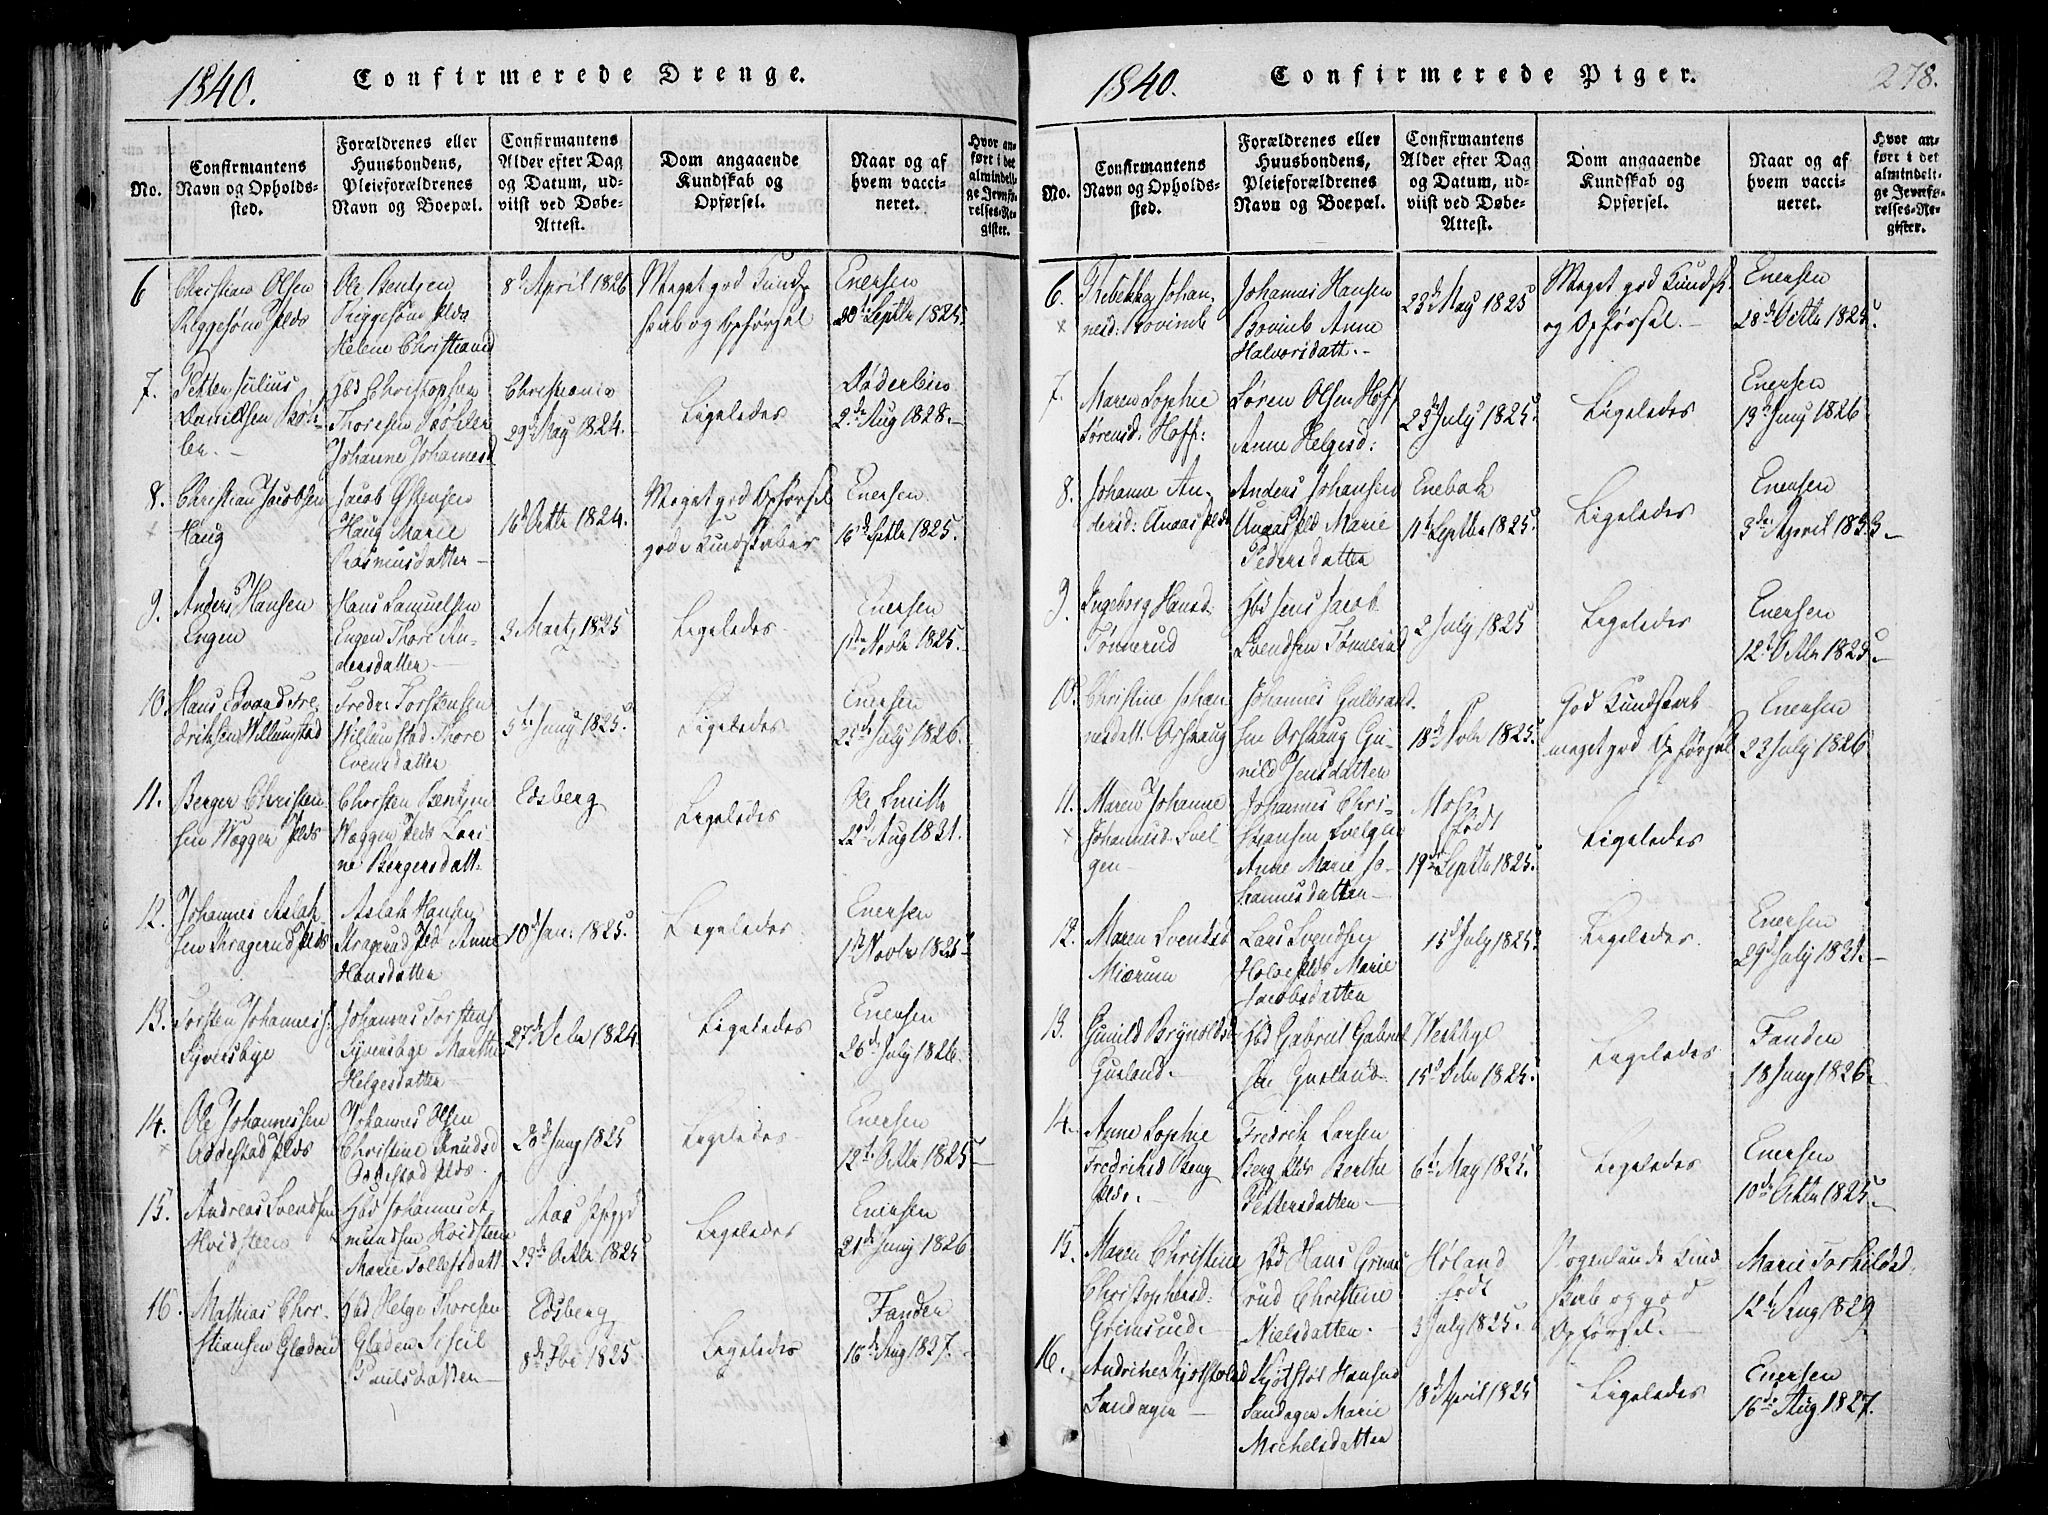 1840.
Confirmerede Drenge.
No.
Confirmantens
Navn og Opholds-
sted.
Forældrenes eller
Huusbondens,
Pleieforældrenes
Navn og Boepæl.
Confirmantens
Alder efter Dag
og Datum, ud-
viist ved Døbe-
Attest.
Dom angaaende
Kundskab og
Opførsel.
Naar og af
hvem vacci-
neret.
Hvor an-
ført i det
almindeli-
ge Jevnfø-
relses-Re-
gister.
6
Christian Olsen
Ole Bentsen
Helene
8d April 1826
Meget god Kund-
skab og Opførsel
Enersen
1825.
7.
Petter Julius
Hbd Christophsen
Thoresen
Johanne Johannesd
Christiania
29d May 1824.
Ligeledes
2de Aug 1828.
8.
Christian Jacobsen
Haug
Jacob
Haug Marie
Rasmusdatter
16d Octbr 1824.
Meget god Opførsel
gode Kundskaber
Enersen
16d Septbr 1825.
9.
Anders Hansen
Engen
Hans Samuelsen
Engen Thore An-
dersdatter
3 Marts 1825
Ligeledes
Enersen
1ste Novbr 1825.
10.
Hans Edvard Fre-
driksen Willumstad
Fredr. Torstensen
Willumstad Thore
Evensdatter
5te Juny 1825.
Ligeledes
Enersen
25d July 1826.
11.
Berger Christen-
sen Væggen Plds
Christen Bentsen
Væggen Plds Kari-
ne Bergersdatt.
Edsberg
Ligeledes
Ole Smith
22d Aug 1831.
12.
Johannes Aslak-
sen Kragerud Plds
Aslak Hansen
Kragerud Pld Anne
Hansdatter
10d Jan: 1825.
Ligeledes
Enersen
1st Novbr 1825
13.
Torsten Johanness.
Syversbye
Johannes Torstens.
Syversbye Marthe
Helgesdatter
27d Decbr 1824
Ligeledes
Enersen
26d July 1826.
14.
Ole Johannessen
Oddestad Plds
Johannes Olsen
Christine Knudsd
Oddestad Plds.
26d Juny 1825
Ligeledes
Enersen
12t Octbr 1825
15.
Andreas Svendsen
Hvidsteen
Hbd Johannes A
mundsen Hvidsteen
Marie Tollefsdatt
Aas
29de Octbr 1825
Ligeledes
Enersen
21d Juny 1826
16.
Mathias Chri-
stiansen Gladen
Hbd Helge Thoresen
Gladen Sissil
Poulsdatter
Edsberg
8d Fbr 1825
Ligeledes
Fanden
16d Aug 1837.
1840.
Confirmerede Piger.
278.
No.
Confirmantens
Navn og Opholds-
sted.
Forældrenes eller
Huusbondens,
Pleieforældrenes
Navn og Boepæl.
Confirmantens
Alder efter Dag
og Datum, ud-
viist ved Døbe-
Attest.
Dom angaaende
Kundskab og
Opførsel.
Naar og af
hvem vacci-
neret.
Hvor an-
ført i det
almindeli-
ge Jevnfø-
relses-Re-
gister.
6.
Rebekka Johan-
nesd. Bovimb
Johannes Hansen
Bovimb Anne
Halvorsdatt.
23d May 1825
Meget god Kundsk.
og Opførsel.
Enersen
28d Octbr 1825.
7.
Maren Sophie
Sørensd. Hoff:
Søren Olsen Hoff
Anne Helgesd:
25d July 1825.
Ligeledes
Enersen
19d Juny 1826
8.
Johanne An-
dersd: Plds
Anders Johansen
Pld Marie
Pedersdatter
Enebak
11t Septbr 1825.
Ligeledes
Enersen
3de April 1833.
9.
Ingeborg Hansd.
Tønnerud
Hbd Jens Jacob
Svendsen Tønnerud
2 July 1825
Ligeledes
Enersen
12t Octbr 1825.
10.
Christine Johan-
nesdatt. Orshaug
Johannes Gulbrand-
sen Orshaug Gu-
nild Jensdatter
18d Novbr 1825.
God Kundskab
meget god Opførsel
Enersen
23 July 1826
11.
Maren Johanne
Johannesd. Svel-
gen
Johannes Chri-
stiansen Svelgen
Anne Marie Jo-
hannesdatter
Moss
født
19d Septbr 1825.
Ligeledes
12.
Maren Svendsd
Miærum
Lars Svendsen
Plds Marie
Jacobsdatter
15d July 1825.
Ligeledes.
Enersen
29d July 1831.
13.
Gunild Brynolsd
Gusland.
Hbd Gabriel Gabriel-
sen Gusland.
15d Octbr 1825.
Ligeledes
Fanden
18 Juny 1826.
14.
Anne Sophie
Fredriksd Berg
Plds.
Fredrik Larsen
Berg Plds Berthe
Pettersdatter
6t May 1825.
Ligeledes
Enersen
10de Octbr 1825.
15.
Maren Christine
Christophersd.
Grimsrud.
Hbd Hans Grims-
rud Christine
Nielsdatter.
Høland
født
3 July 1825.
Nogenlunde Kund-
skab og god
Opførsel.
Marie Torkildsd.
12t Aug 1829
16.
Andrine Kjøstolsd
Sandager
Kjøstol Hansen
Sandager Marie
Michelsdatter
18d April 1825
Ligeledes
Enersen
16de Aug 1827.